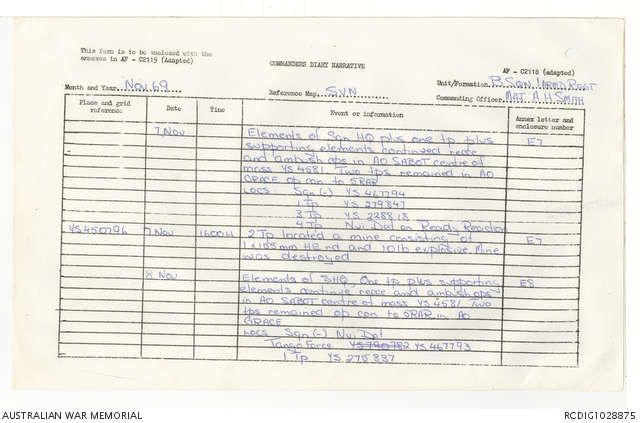 This form is to be enclosed with the
annexes in AF - C2119 (Adapted)
COMMANDERS DIARY NARRATIVE
AF - C2118 (adapted)
Month and Year Nov 69
Reference Map SVN
Unit/Formation B Sqn 1 Armd Regt
Commanding Officer MAJ A H Smith
Place and grid reference
Date
Time
Event or information
Annex letter and enclosure number
7 Nov
Elements of Sqn HQ plus one tp plus
E7
supporting elements continued recce
and ambush ops in AO SABOT centre of
mass YS 4581 Two tps remained in AO
GRACE op con to 5RAR
LOCS Sqn (-) YS 467794
1 Tp YS 279847
3 Tp YS 228818
4 Tp Nui Dat on Ready Reaction
YS 450796 7 Nov 1600H 2 Tp located a mine consisting of
1 x 155mm HE rd and 10lb explosive. Mine
E7
was destroyed
8 Nov
Elements of SHQ, One tp plus supporting
E8
elements continue recce and ambush ops
in AO SABOT centre of mass YS 4581 Two
tps remained op con to 5RAR in AO
GRACE
LOCS Sqn (-) Nui Dat
Tango Force YS 790782 YS 467793
1 Tp YS 275837
AUSTRALIAN WAR MEMORIAL
RCDIG1028875